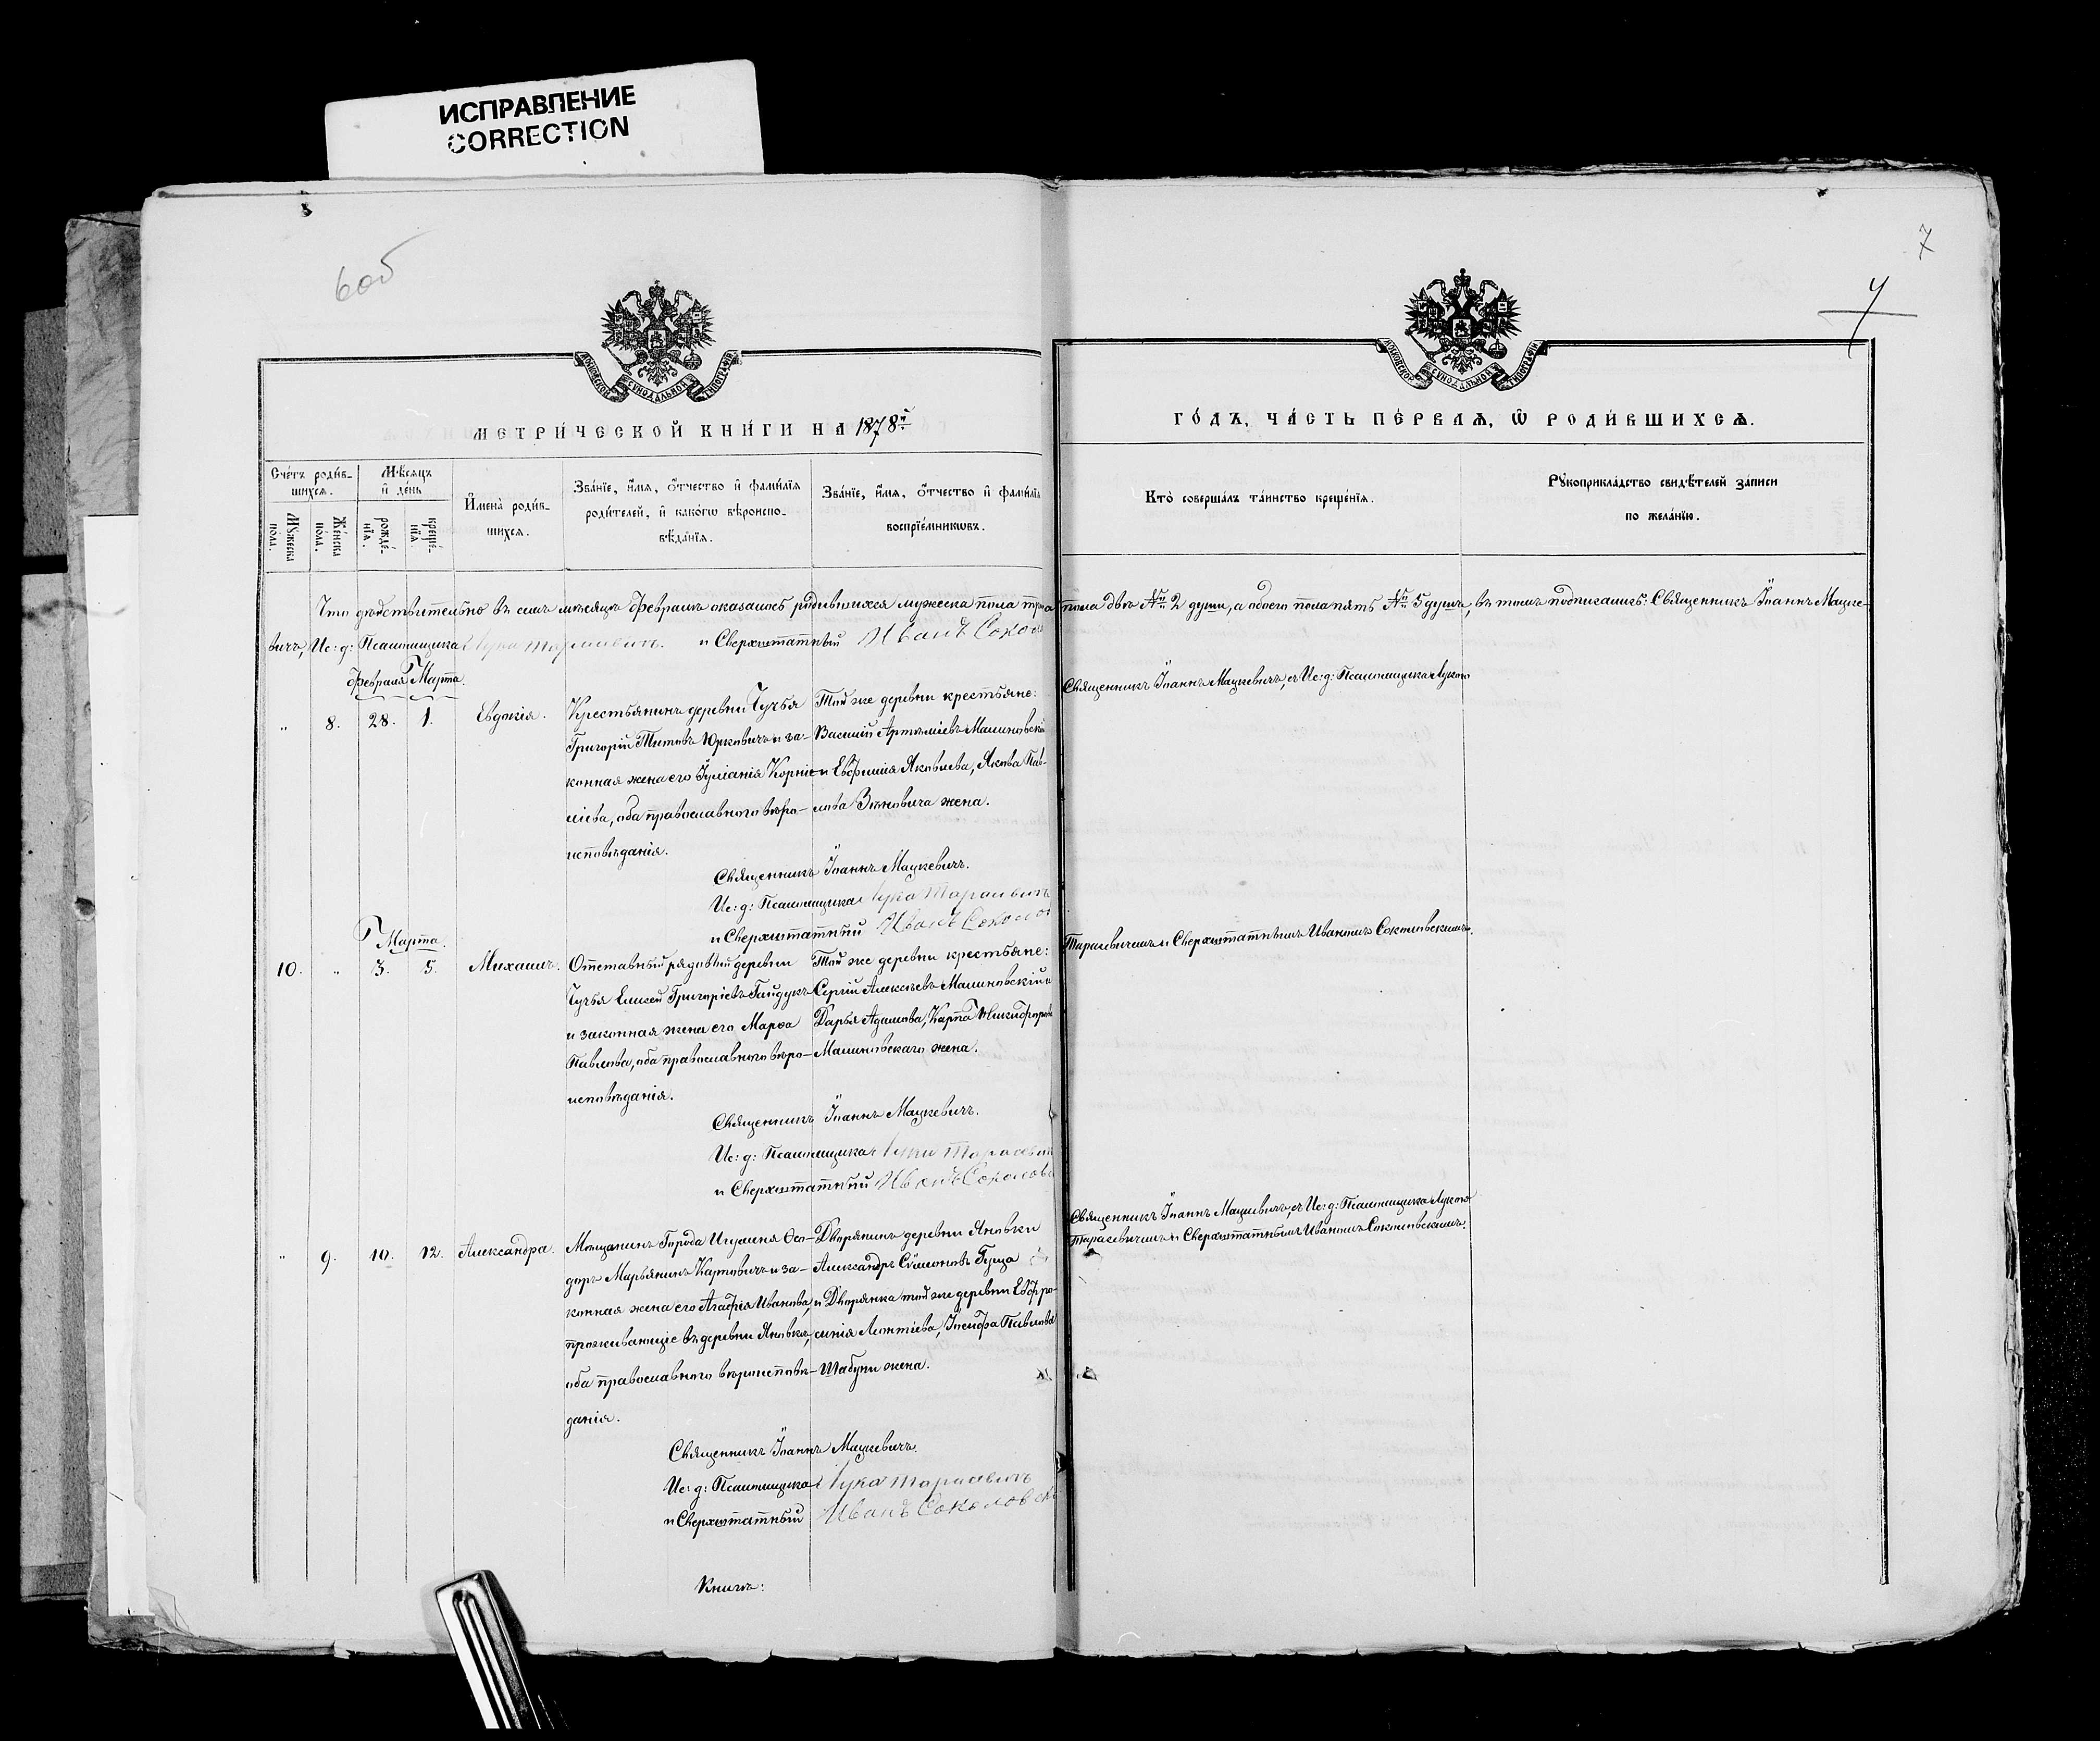 ИСПРАВЛЕНИЕ
CORRECTION
6об
7
МОСКОВСКОЙ СѴНОДАЛЬНОЙ ТИПОГРАФІИ
МОСКОВСКОЙ СѴНОДАЛЬНОЙ ТИПОГРАФІИ
МЕТРИ́ЧЕСКОЙ КНИ́ГИ НА 1878й
ГО́ДЪ, ЧА́СТЬ ПЕ́РВАѦ, Ѡ҆ РОДИ́ВШИХСѦ.
Сче́тъ роди́в-
шихсѧ.
Мꙋ́жеска
по́ла.
Же́нска
по́ла.
Мѣ́сѧцъ
и҆ де́нь
рожде́-
нїѧ.
креще́-
нїѧ
И҆мена̀ роди́в-
шихсѧ.
Зва́нїе, и҆́мѧ, ѻ҆́тчество и҆ фами́лїѧ
роди́телей, и҆ како́гѡ вѣроиспо-
вѣ́данїѧ.
Зва́нїе, и҆́мѧ, ѻ҆́тчество и҆ фами́лїѧ
воспрїе́мникѡвъ.
Кто̀ соверша́лъ та́инство креще́нїѧ.
Рꙋкоприкла́дство свидѣ́телей за́писи
по жела́нїю.
Что дѣйствительно въ семъ мѣсяцѣ Февралѣ оказалось родившихся мужеска пола три, пола двѣ № 2 души, а обоего пола пять № 5 душъ, въ томъ подписались: Священникъ Іоаннъ Мацке-
вичъ, Ис: д: Псаломщика Лука Тарасевичъ. и Сверхштатный Иванъ Соколов
Февраля Марта
" 8. 28. 1. Евдокія.
Крестьянинъ деревни Гучья
Григорій Титовъ Юрковичъ и за-
конная жена его Іуліанія Корни-
ліева, оба православнаго вѣро-
исповѣданія.
Той же деревни крестьяне:
Василій Артеміевъ Малиновскій
и Евфимія Яковлева, Якова Пав-
лова Зѣновича жена.
Священникъ Іоаннъ Мацкевичъ, съ Ис: д: Псаломщика Лукою
Священникъ Іоаннъ Мацкевичъ.
Ис: д: Псаломщика Лука Тарасевичъ
и Сверхштатный Иванъ Соколов
Марта
10. " 3. 5. Михаилъ.
Отставный рядовый деревни
Гучья Елисей Григоріевъ Гайдукъ
и законная жена его Марѳа
Павлова, оба православнаго вѣро-
исповѣданія.
Той же деревни крестьяне:
Сергій Алексѣевъ Малиновскій и
Дарья Адамова, Карпа Никифорова
Малиновскаго жена.
Тарасевичемъ и Сверхштатнымъ Иваномъ Соколовскимъ.
Священникъ Іоаннъ Мацкевичъ.
Ис: д: Псаломщика Лука Тарасевич
и Сверхштатный Иванъ Соколовс
" 9. 10. 12. Александра.
Мѣщанинъ Города Игумена Ѳео-
доръ Марьяниъ Карповичъ и за-
конная жена его Агафія Иванова,
проживающіе въ деревни Яновки,
оба православнаго вѣроисповѣ-
данія.
Дворянинъ деревни Яновки
Александръ Сѵмеоновъ Гуща
и Дворянка той же деревни Евфро-
синія Леонтіева, Іосифа Павлова
Шабуни жена.
Священникъ Іоаннъ Мацкевичъ, съ Ис: д: Псаломщика Лукою
Тарасевичемъ и Сверхштатнымъ Иваномъ Соколовскимъ.
Священникъ Іоаннъ Мацкевичъ.
Ис: д: Псаломщика Лука Тарасевичъ
и Сверхштатный Иванъ Соколовскі
Книгъ: